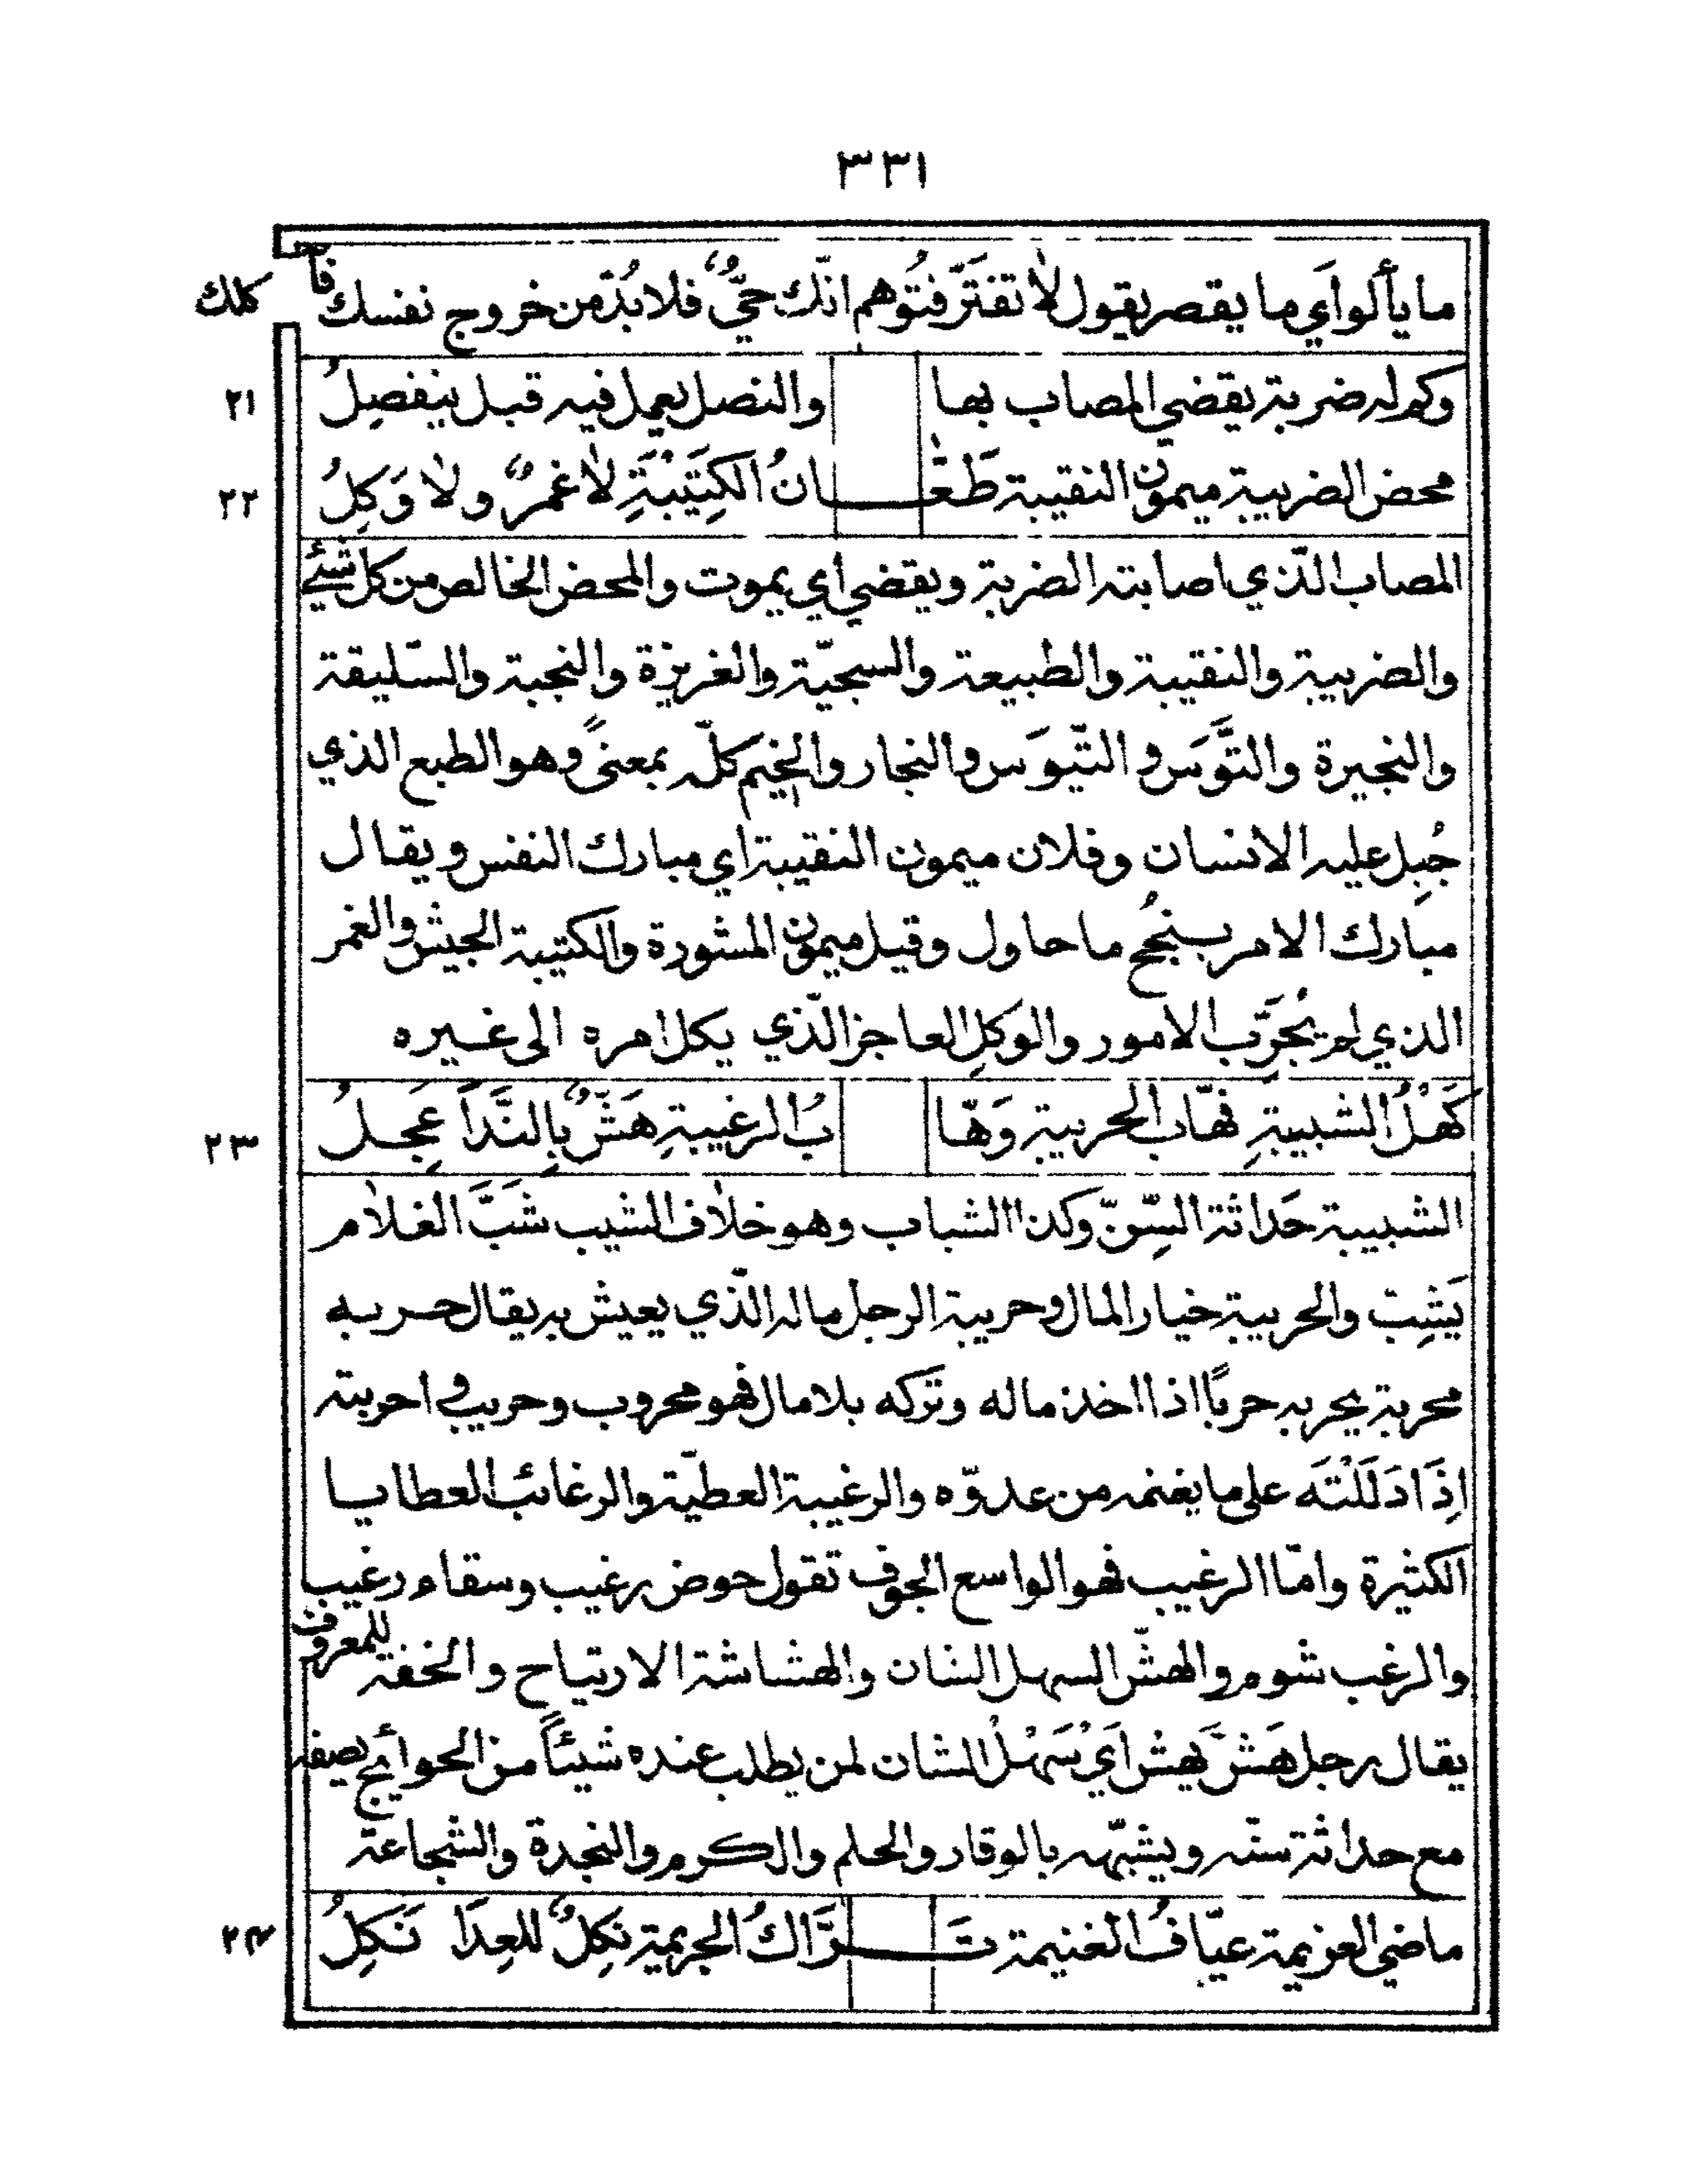 ٣٣١
ما يألوا أي ما يقصر يقول لا تفتَرّ فتُوهم انّك حيٌّ فلا بُدّ من خروج نفسك فآ كلك
وكم له ضربة يقضي المصاب بها والنصل يعمل فيه قبل ينفصِلُ ٢١
محض الضريبة ميمون النقيبة طَعّـانُ الكَتِيْبَةِ لا غمرٌ ولا وَكِلُ ٢٢
المصاب الذّي اصابته الضربة ويقضي اي يموت والمحض الخالص من كل شئے
والضريبة والنقيبة والطبيعة والسجيّة والغريزة والنجبة والسّليقة
والنجيرة والتَّوَس و التّيوَس والنجار والخيم كلّه بمعنىً وهو الطبع الذي
جُبِل عليه الانسان وفلان ميمون النقيبة اي مبارك النفس ويقال
مبارك الامر ينجُح ما حاول وقيل ميمون المشورة والكتيبة الجيش والغمر
الذي لم يُجَرَّب الامور والوكِل العاجز الذّي يكل امره الى غيره
كَهْلُ الشبيبةِ نهّاب الحريبة وَهّا بُ الرغيبةِ هَشٌّ بِالنَّدَا عَجِلُ ٢٣
الشبيبة حَداثة السِّنّ وكذا الشباب وهو خلاف الشيب شَبَّ الغلام
يَشِبّ والحريبة خيار المال وحريبة الرجل ماله الذّي يعيش به يقال حربه
محربة يحربه حربًا اذا اخذ ماله وتركه بلا مال فهو محروب وحريب و احربته
اِذَا دَلَلْتَه على ما يغنمه من عدوّه والرغيبة العطيّة والرغائب العطايا
الكثيرة وامّا الرغيب فهو الواسع الجوف تقول حوض رغيب وسقاء رغيب
والرغب شوم والهشّ السهل الشان والهشاشة الارتياح والخفة للمعروف
يقال رجل هَشّ بَهش اَيْ سَهْلُ الشان لمن يطلب عنده شيئاً من الحوائج يصفه
مع حداثة سنّه ويشبّهه بالوقار والحلم والكرم والنجدة والشجاعة
ماضي العزيمة عيّافُ الغنيمة تَـرَّاكُ الجريمة نكِلٌ للعِدَا نَكِلُ ٢٤